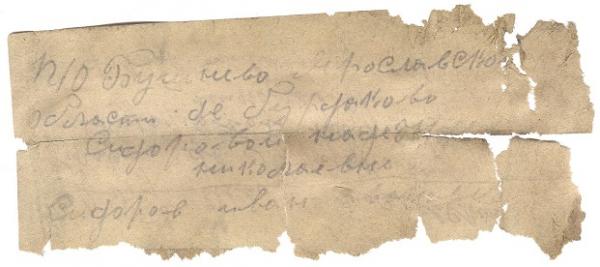 п/о Бушнево Ярославско
области де Бурдаково
Сидоровой Надеж
николаевн
Сидоров иван